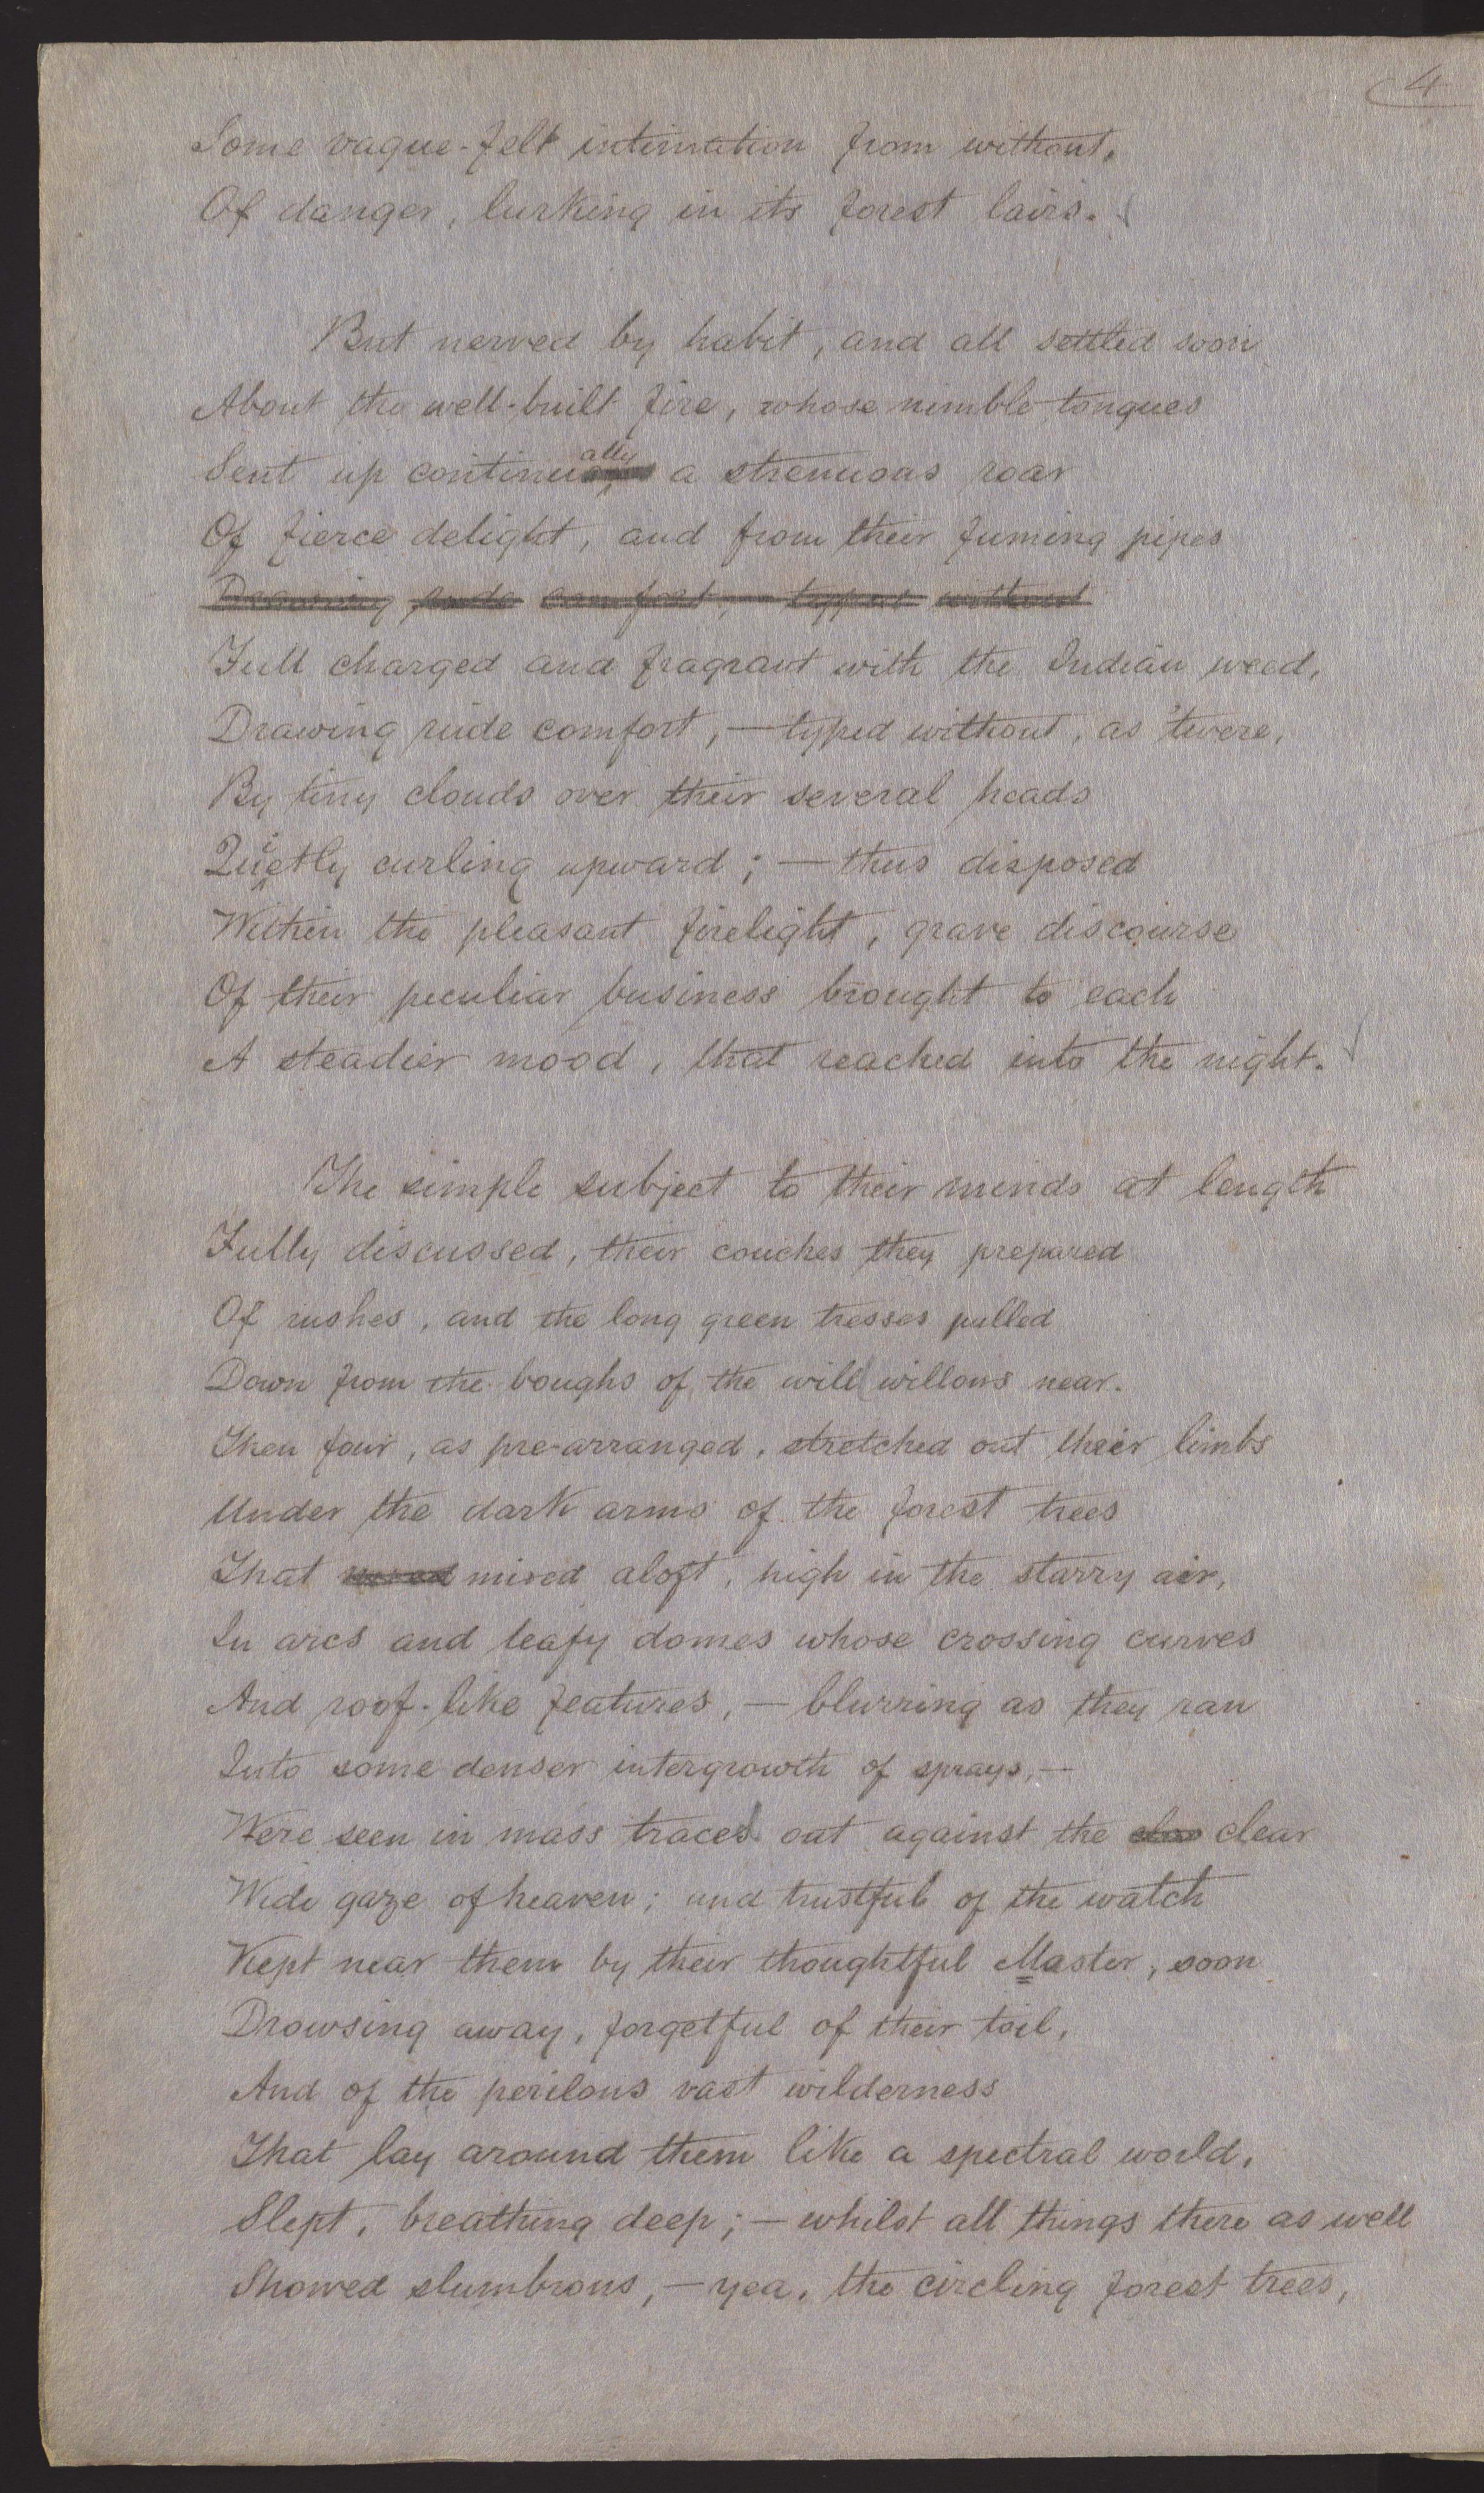 4
Some vague-felt intimation from without,
Of danger, lurking in its forest lairs.
But nerved by habit, and all settled soon
About the well-built fire, whose nimble tongues
Sent up continually a strenuous roar
Of fierce delight, and from their fuming pipes
Drawing rude comfort, — typped without
Full charged and fragrant with the Indian weed,
Drawing rude comfort, — typed without, as 'twere,
By tiny clouds over their several heads
Quietly curling upward; — thus disposed
Within the pleasant firelight, grave discourse
Of their peculiar business brought to each
A steadier mood, that reached into the night.
The simple subject to their minds at length
Fully discussed, their couches they prepared
Of rushes, and the long green tresses pulled
Down from the boughs of the wild willows near.
Then four, as pre-arranged, stretched out their limbs
Under the dark arms of the forest trees
That mixed aloft, high in the starry air,
In arcs and leafy domes whose crossing curves
And roof-like features, — blurring as they ran
Into some denser intergrowth of sprays, —
Were seen in mass traced out against the clear
Wide gaze of heaven; and trustful of the watch
Kept near them by their thoughtful Master, soon
Drowsing away, forgetful of their toil,
And of the perilous vast wilderness
That lay around them like a spectral world,
Slept, breathing deep; — whilst all things there as well
Showed slumbrous, — yea, the circling forest trees,